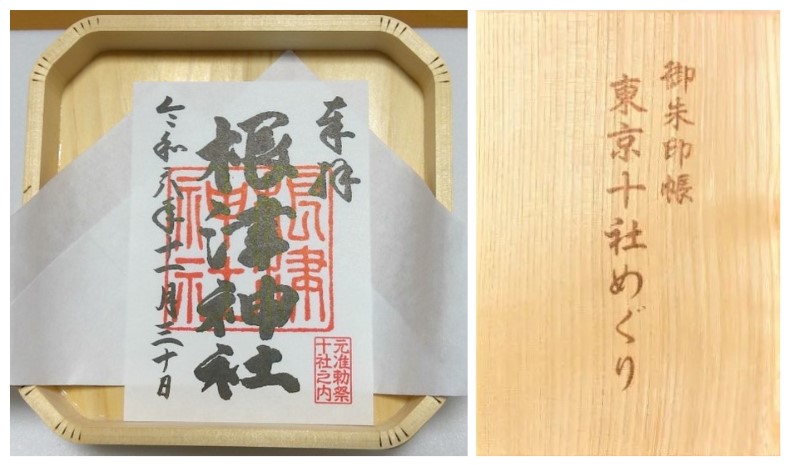 奉拝
根津神社
根津
神社
令和元年十一月三十日
元准勅祭
十社之内
御朱印帳
東京十社めぐり